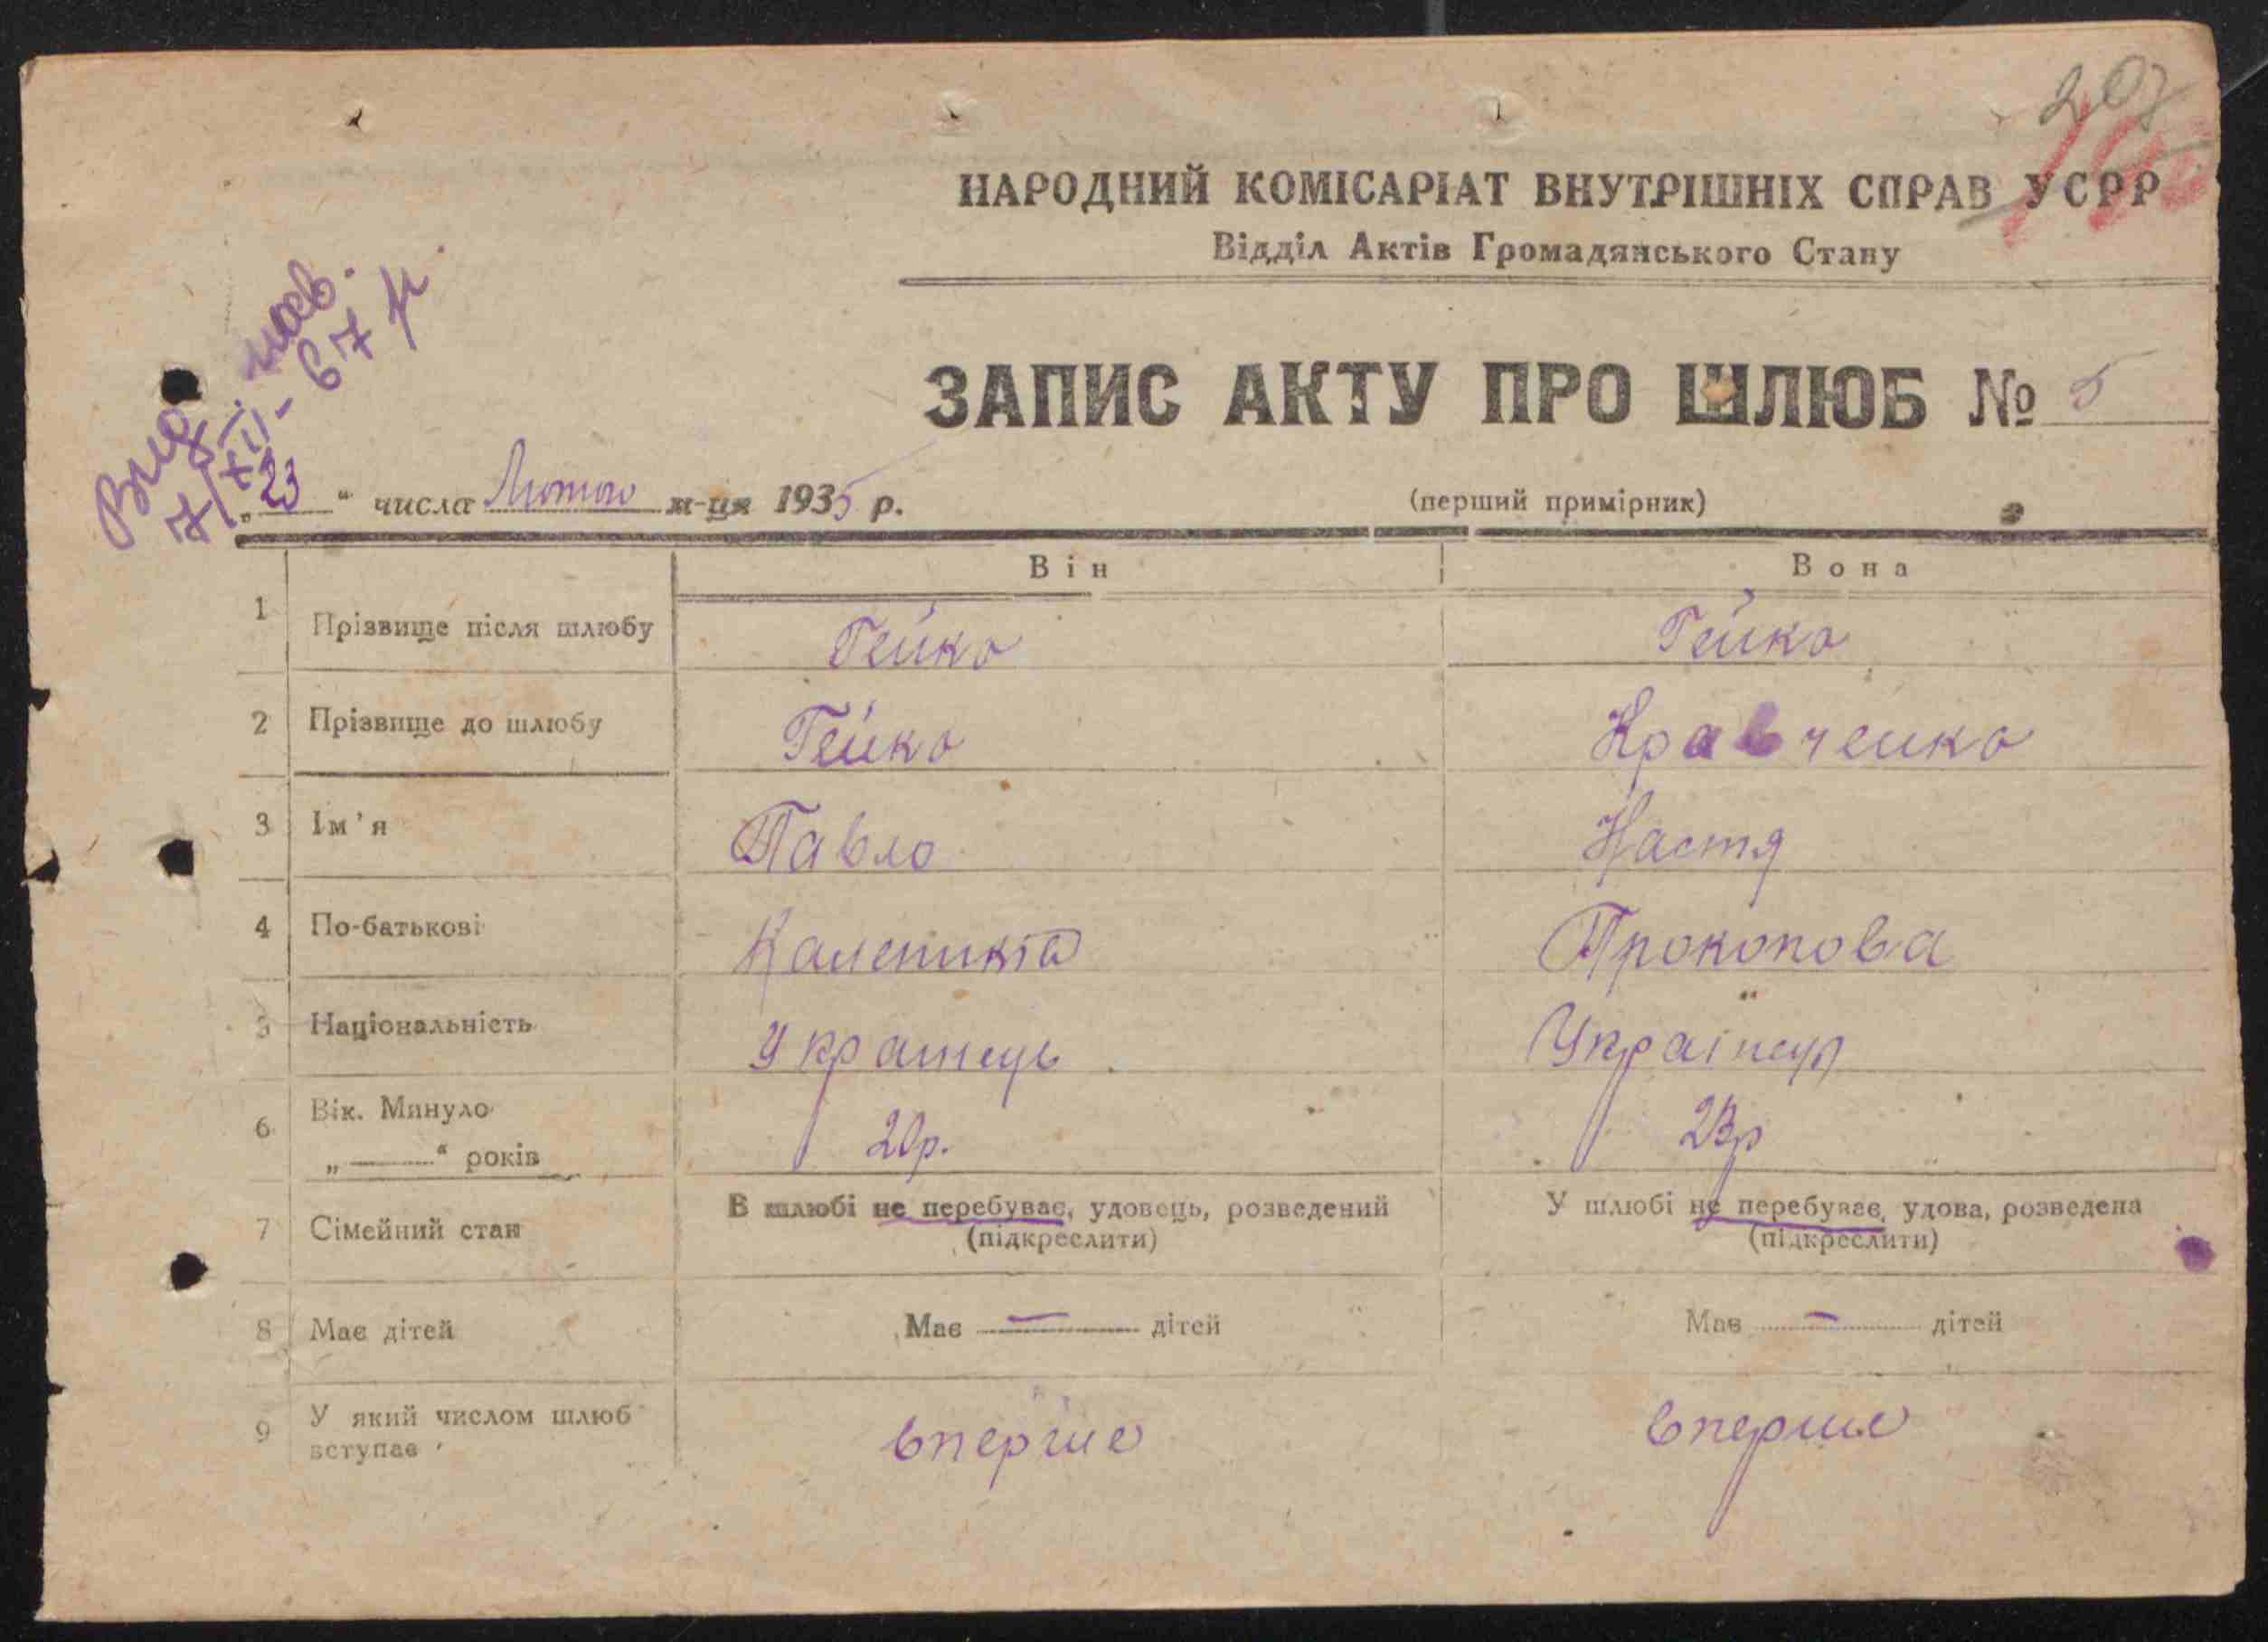 207
НАРОДНИЙ КОМІСАРІАТ ВНУТРІШНІХ СПРАВ УСРР
Відділ Актів Громадянського Стану
ЗАПИС АКТУ ПРО ШЛЮБ № 5
7/XII-67 р
„23“ числа Лютого м-ця 1935 р.
(перший примірник)
Він Вона
1 Прізвище після шлюбу Гейко Гейко
2 Прізвище до шлюбу Гейко Кравченко
3 Ім'я Павло Настя
4 По-батькові Прокопова
5 Національність Українець
6 Вік. Минуло 20р. 23р
„——“ років
7 Сімейний стан В шлюбі не перебуває, удовець, розведений У шлюбі не перебуває, удова, розведена
(підкреслити) (підкреслити)
8 Має дітей Має — дітей Має — дітей
9 У який числом шлюб вперше вперше
вступає